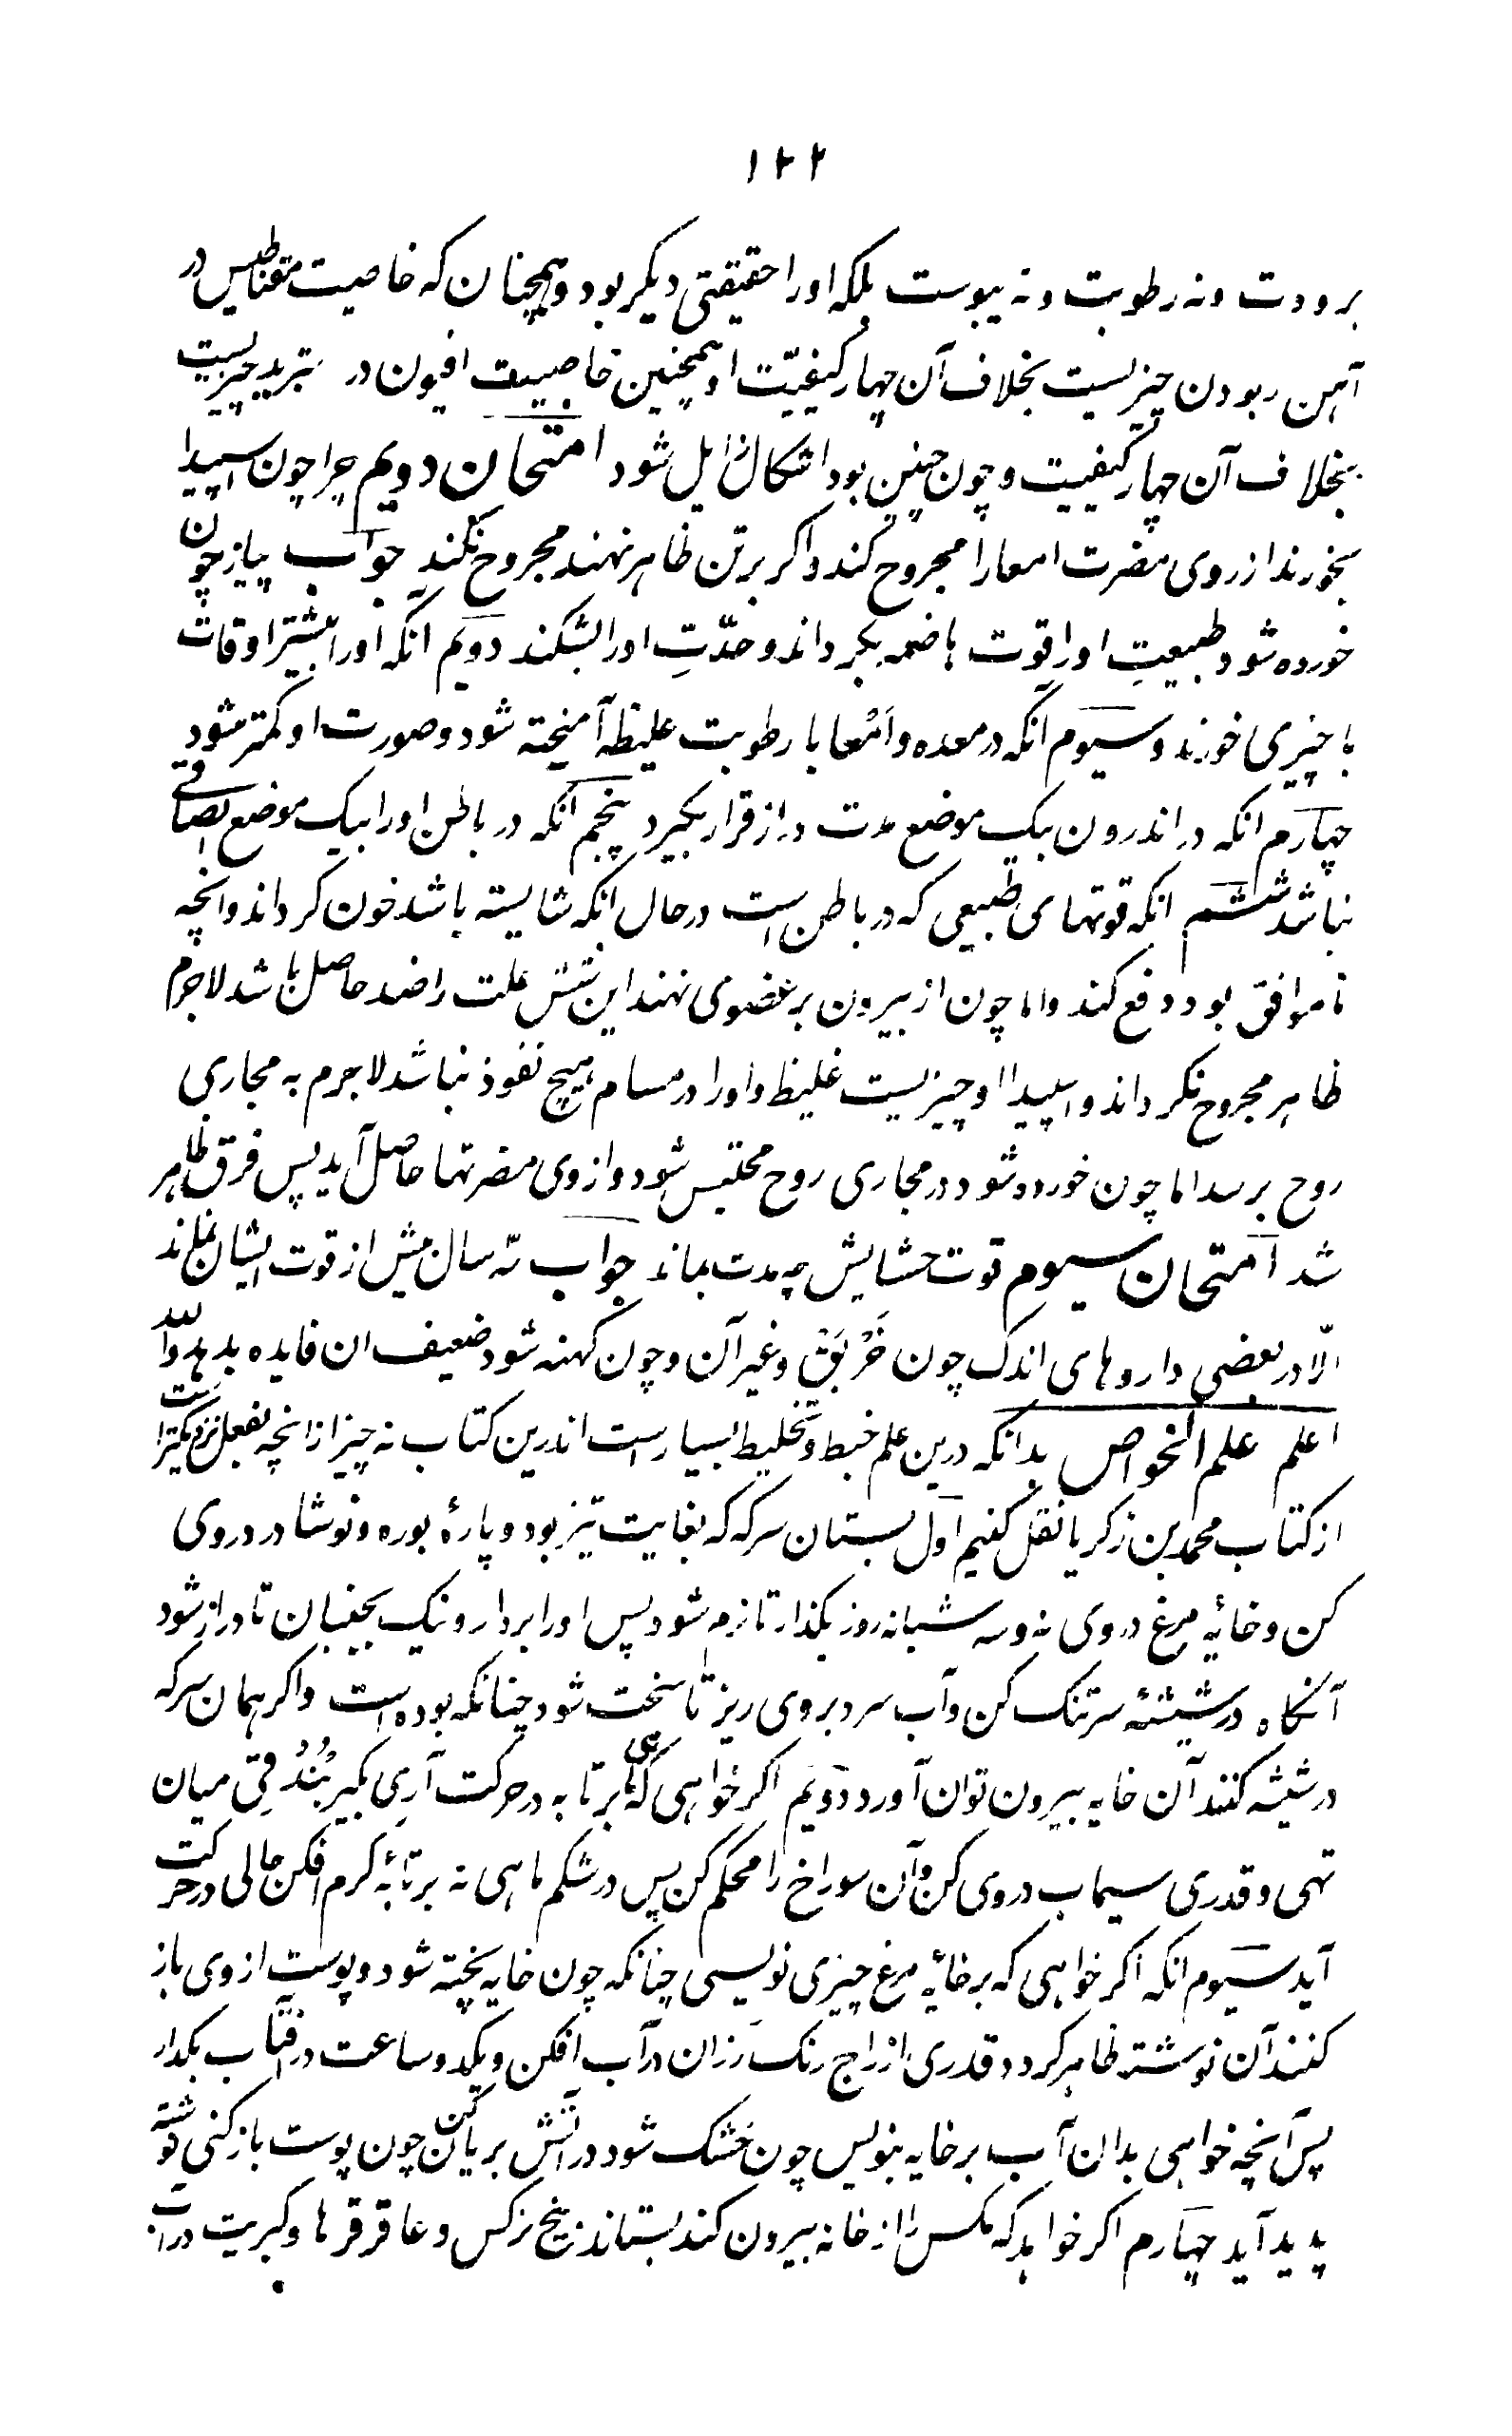 ۱۲۲
برودت و نه رطوبت و نه یبوست بلکه اورا حقیقتی دیکر بود و همچنان که خاصیت مقناطیس در
آهن ربودن چیزیست بخلاف آن چهار کیفیّت او همچنین خاصییت افیون در تبرید چیزیست
بخلاف آن چهار کیفییت و چون چنین بود اشکال زایل شود امتحان دویم چرا چون اسپیدا
بخورند از روی مضرت امعا را مجروح کند و اکر بر تن ظاهر نهند مجروح نکند جواب پیاز چون
خورده شود طبیعتِ اورا قوت هاضمه بکرداند و حدّتِ اورا بشکند دویم انکه اورا بیشتر اوقات
با چیزی خورند و سیوم انکه در معده و اَمْعا با رطوبت غلیظه آمیخته شود و صورت او کمتر شود
چهارم انکه در اندرون بیک موضع مدت دراز قرار نکیرد پنجم انکه در باطن اورا بیک موضع التصاقی
نباشد ششم انکه قوتهای طبیعی که در باطن است در حال انکه شایسته باشد خون کرداند و انچه
ناموافق بود دفع کند و اما چون از بیرون بر عضوی نهند این شش علت را ضد حاصل باشد لاجرم
ظاهر مجروح نکرداند و اسپیدا او چیزیست غلیظ و اورا در مسام هیچ نفوذ نباشد لاجرم به مجاری
روح برسد اما چون خورده شود در مجاری روح محتبس شود و از وی مضرتها حاصل آید پس فرق ظاهر
شد امتحان سیوم قوت حشایش چه مدت بماند جواب سّه سال بیش از قوت ایشان نماند
الّا در بعضی داروهای اندک چون خَرْبَقْ و غیر آن و چون کهنه شود ضعیف ان فایده بدهد و اللّه
اعلم علم الخواص بدانکه درین علم خبط و تخلیط بسیار است اندرین کتاب نه چیز از انچه بفعل نزدیکتر است
از کتاب محمد بن زکریا نقل کنیم اوّل بستان سرکه که بغایت تیز بود و پارهٔ بوره و نوشادر در وی
کن و خایهٔ مرغ در وی نه و سه شبانه روز بکذار تا نرم شود پس اورا بردار و نیک بجنبان تا دراز شود
آنکاه در شیشهٔ سرتنک کن و آب سرد بر وی ریز تا سخت شود چنانکه بوده است و اکر همان سرکه
در شیشه کنند آن خایه بیرون توان آورد دویم اکر خواهی که ماهی بر تابه در حرکت آرِی بکیر بُنْدُقِی میان
تهی و قدری سیماب در وی کن و آن سوراخ را محکم کن پس در شکم ماهی نه بر تابهٔ کرم افکن حالی در حرکت
آید سیوم انکه اکر خواهی که بر خایهٔ مرغ چیزی نویسی چنانکه چون خایه پخته شود و پوست از وی باز
کنند آن نوشته ظاهر کردد قدری از زاج رنک رزان در آب افکن و یکدو ساعت در آفتاب بکدار
پس آنچه خواهی بدان آب بر خایه بنویس چون خشک شود در آتش بریان کن چون پوست باز کنی نوشته
پدید آید چهارم اکر خواهد که مکس را از خانه بیرون کند بستاند بیخ نرکس و عاقرقرها و کبریت در آب